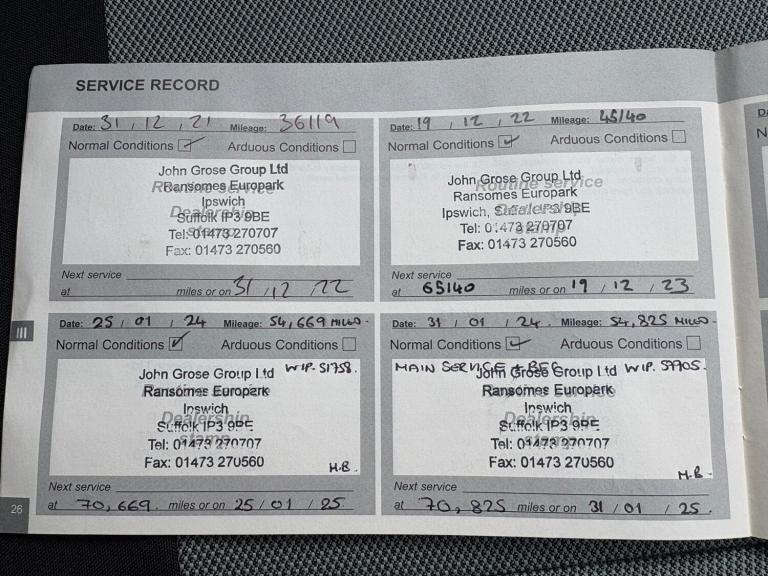 SERVICE RECORD
Date: 31 / 12 / 21 Mileage: 36119
Normal Conditions ✓ Arduous Conditions
Routine service
Dealership
stamp
John Grose Group Ltd
Ransomes Europark
Ipswich
Suffolk IP3 9BE
Tel: 01473 270707
Fax: 01473 270560
Next service
at miles or on 31 / 12 / 22
Date: 19 / 12 / 22 Mileage: 45140
Normal Conditions ✓ Arduous Conditions
Routine service
Dealership
stamp
John Grose Group Ltd
Ransomes Europark
Ipswich, Suffolk IP3 9BE
Tel: 01473 270707
Fax: 01473 270560
Next service
at 65140 miles or on 19 / 12 / 23
Date: 25 / 01 / 24 Mileage: 54,669 MILES.
Normal Conditions ✓ Arduous Conditions
Dealership
stamp
John Grose Group Ltd WIP. 51758.
Ransomes Europark
Ipswich
Suffolk IP3 9BE
Tel: 01473 270707
Fax: 01473 270560
H.B
Next service
at 70,669 miles or on 25 / 01 / 25
Date: 31 / 01 / 24. Mileage: 54,825 MILES.
Normal Conditions ✓ Arduous Conditions
MAIN SERVICE + WIP. 59905.
Dealership
stamp
John Grose Group Ltd
Ransomes Europark
Ipswich
Suffolk IP3 9BE
Tel: 01473 270707
Fax: 01473 270560
H.B
Next service
at 70,825 miles or on 31 / 01 / 25.
III
26